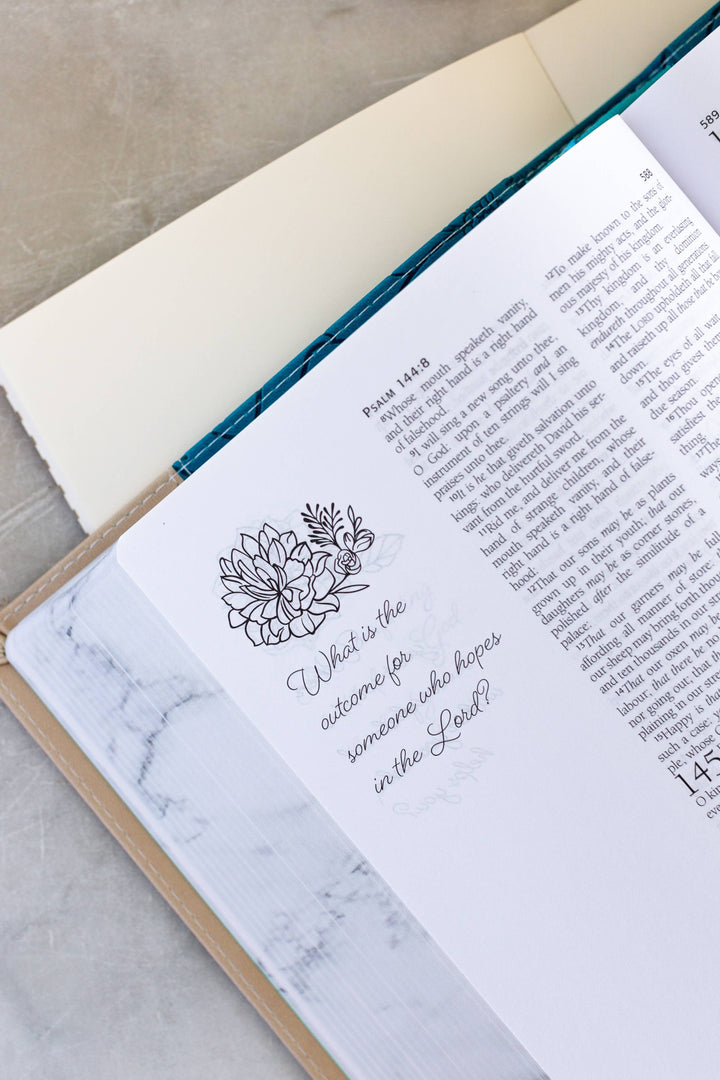 What is the
outcome for
someone who hopes
in the Lord?
PSALM 144:8
8Whose mouth speaketh vanity,
and their right hand is a right hand
of falsehood.
9I will sing a new song unto thee,
O God: upon a psaltery and an
instrument of ten strings will I sing
praises unto thee.
10It is he that giveth salvation unto
kings: who delivereth David his ser-
vant from the hurtful sword.
11Rid me, and deliver me from the
hand of strange children, whose
mouth speaketh vanity, and their
right hand is a right hand of false-
hood:
12That our sons may be as plants
grown up in their youth; that our
daughters may be as corner stones,
polished after the similitude of a
palace:
13That our garners may be full,
affording all manner of store:
our sheep may bring forth thou
and ten thousands in our str
14That our oxen may be
labour; that there be n
nor going out; that th
plaining in our street
15Happy is tha
such a case:
ple, whose
145
O k
eve
588
12To make known to the sons of
men his mighty acts, and the glor-
ious majesty of his kingdom.
13Thy kingdom is an everlasting
kingdom, and thy dominion
endureth throughout all generations
14The LORD upholdeth all that fall
and raiseth up all those that be
down.
15The eyes of all wa
and thou givest them
due season.
16Thou open
satisfiest th
thing.
17Th
way
589